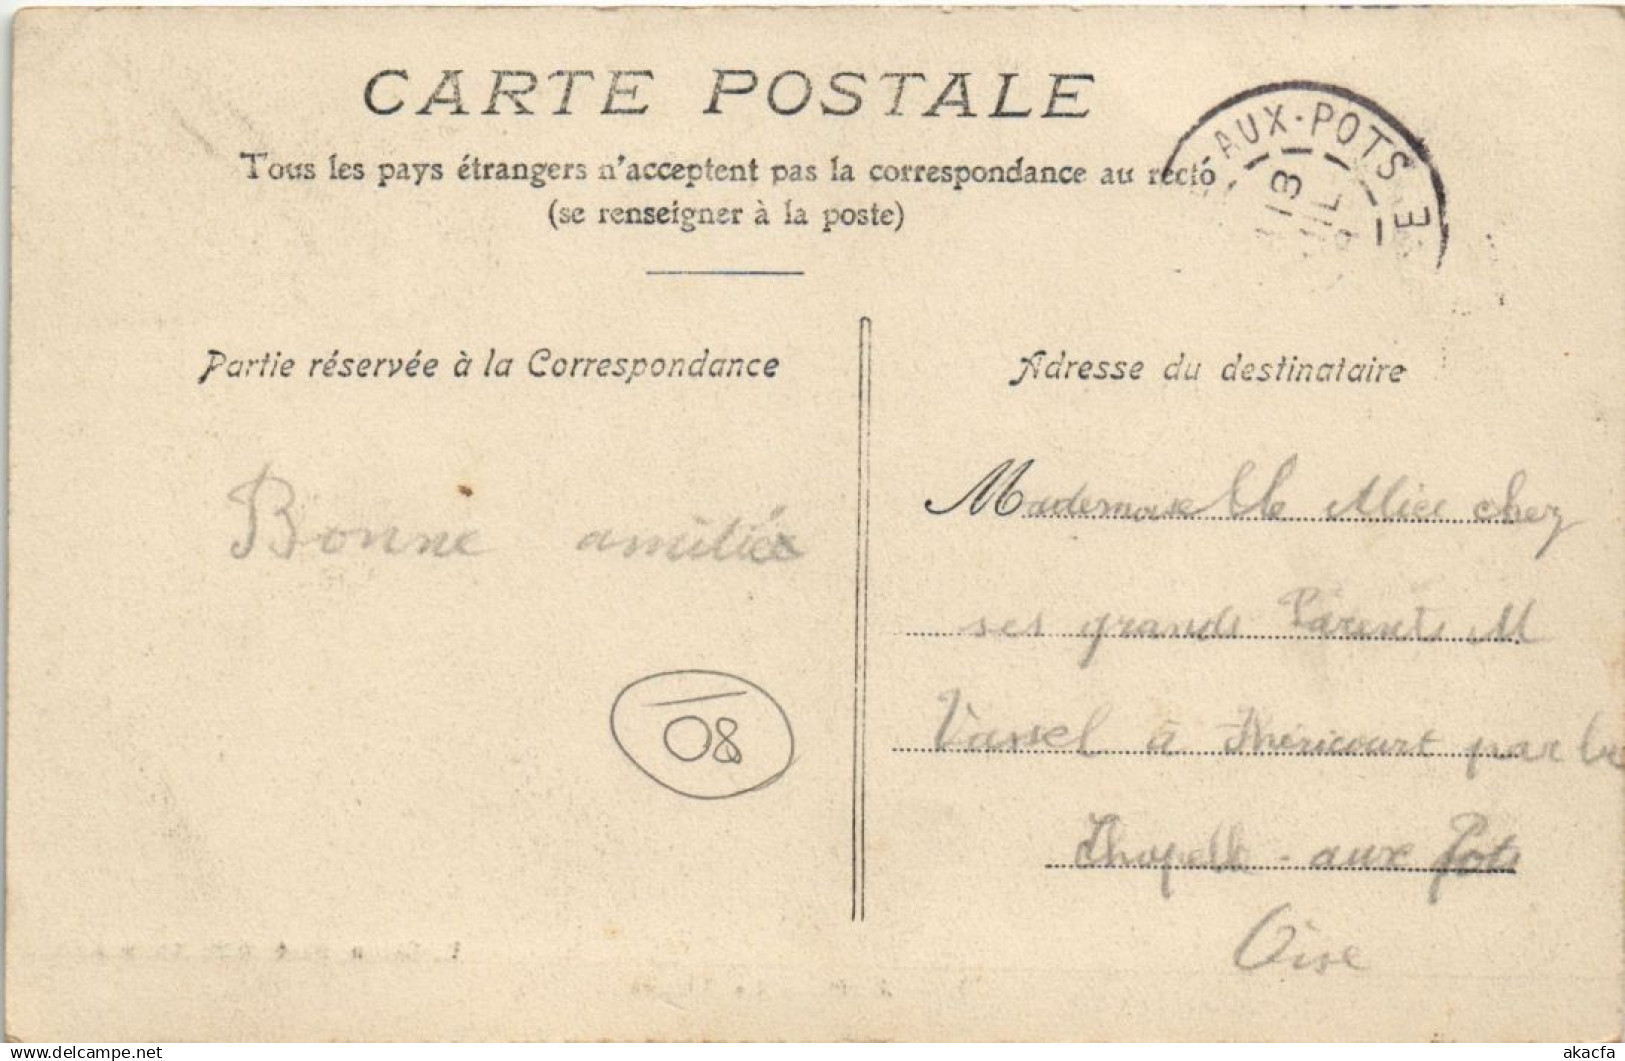 CARTE POSTALE
Tous les pays étrangers n'acceptent pas la correspondance au recto
(se renseigner à la poste)
AUX-POTS
13
E
Partie réservée à la Correspondance
Adresse du destinataire
Bonne amitiée
Mademoiselle Alice chez
ses grands Parents M
Vassel à Théricourt par la
Chapelle-aux Pots
Oise
08
akacfa